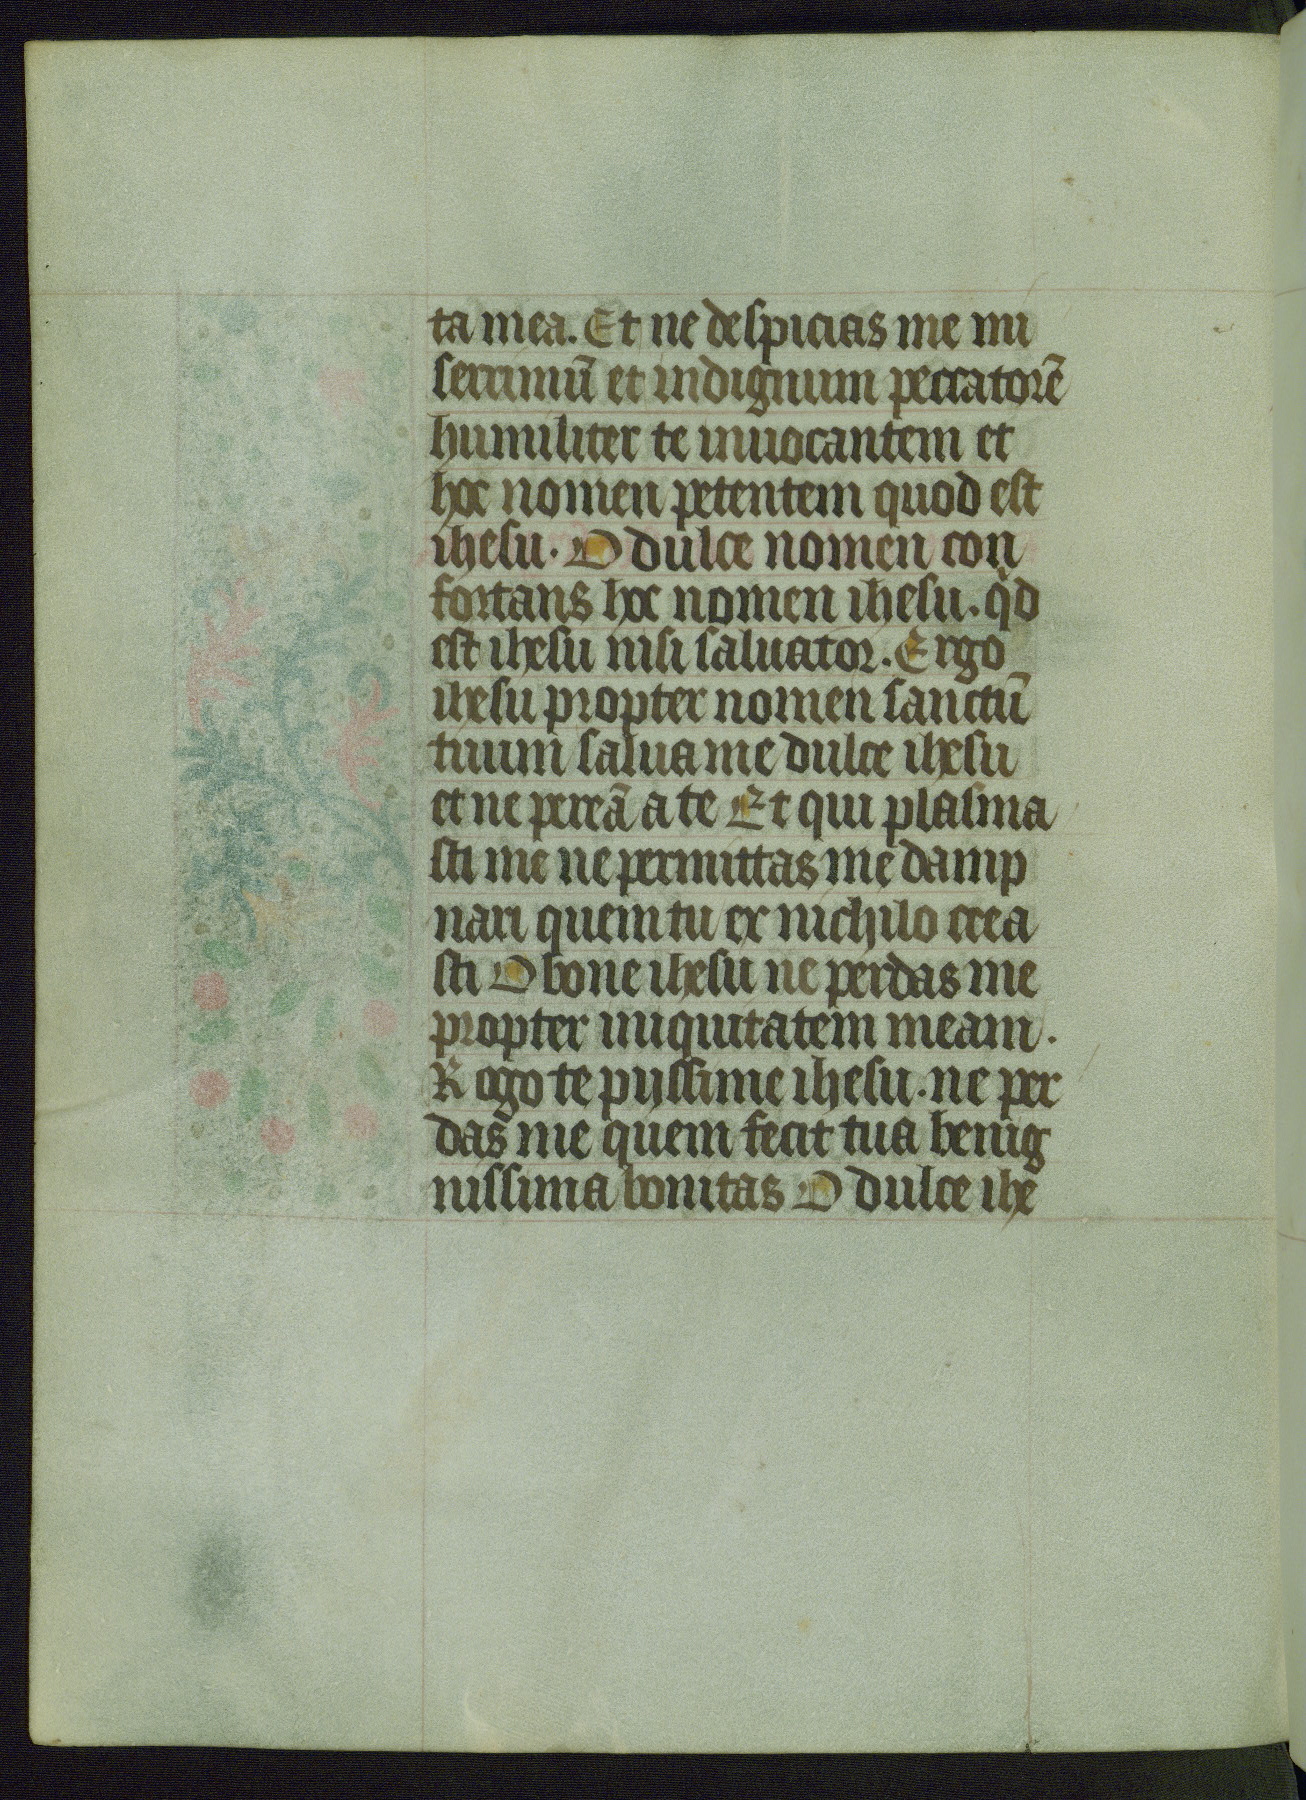 ta mea. Et ne despicias me mi
serrimū et indignum peccatorē
humiliter te inuocantem et
hoc nomen petentem quod est
ihesu. O dulce nomen con
fortans hoc nomen ihesu. qd̓
est ihesu nisi saluator. Ergo
ihesu propter nomen sanctū
tuum salua me dulce ihesu
et ne pereā a te Et qui plasma
sti me ne permittas me damp
nari quem tu ex nichilo crea
sti O bone ihesu ne perdas me
propter iniquitatem meam.
Rogo te pyssime ihesu. ne per
das me quem fecit tua benig
nissima bonitas O dulce ihe